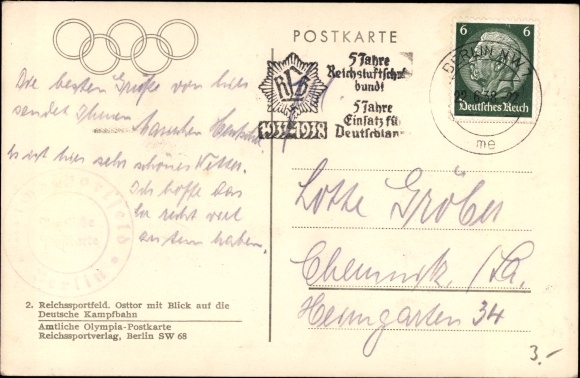 POSTKARTE
6 6
Deutsches Reich
BERLIN NW
me
5 Jahre
Reichsluftschutz
bund!
5 Jahre
Einsatz für
Deutschlan
RLB
1933-1938
Die besten Grüße von hier
sendet Ihnen
Es ist hier sehr schönes Wetter.
Ich hoffe das
recht viel
haben.
Lotte Gröber
Chemnitz /Sa.
Heimgarten 34
Berlin
2. Reichssportfeld. Osttor mit Blick auf die
Deutsche Kampfbahn
Amtliche Olympia-Postkarte
Reichssportverlag, Berlin SW 68
3.-